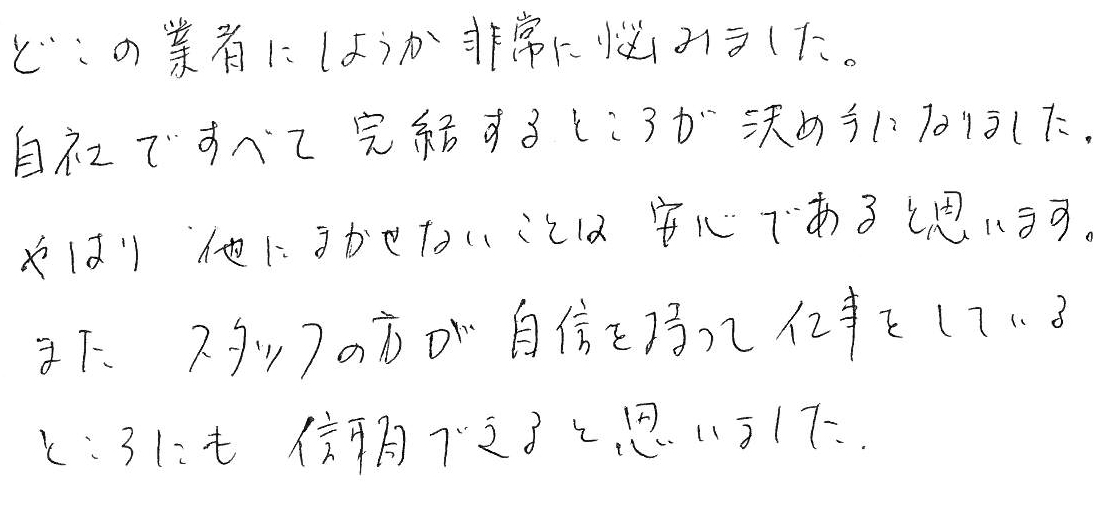 どこの業者にしようか非常に悩みました。
自社ですべて完結するところが決め手になりました.
やはり他にまかせないことは安心であると思います。
また スタッフの方が自信を持って仕事をしている
ところにも信頼できると思いました.